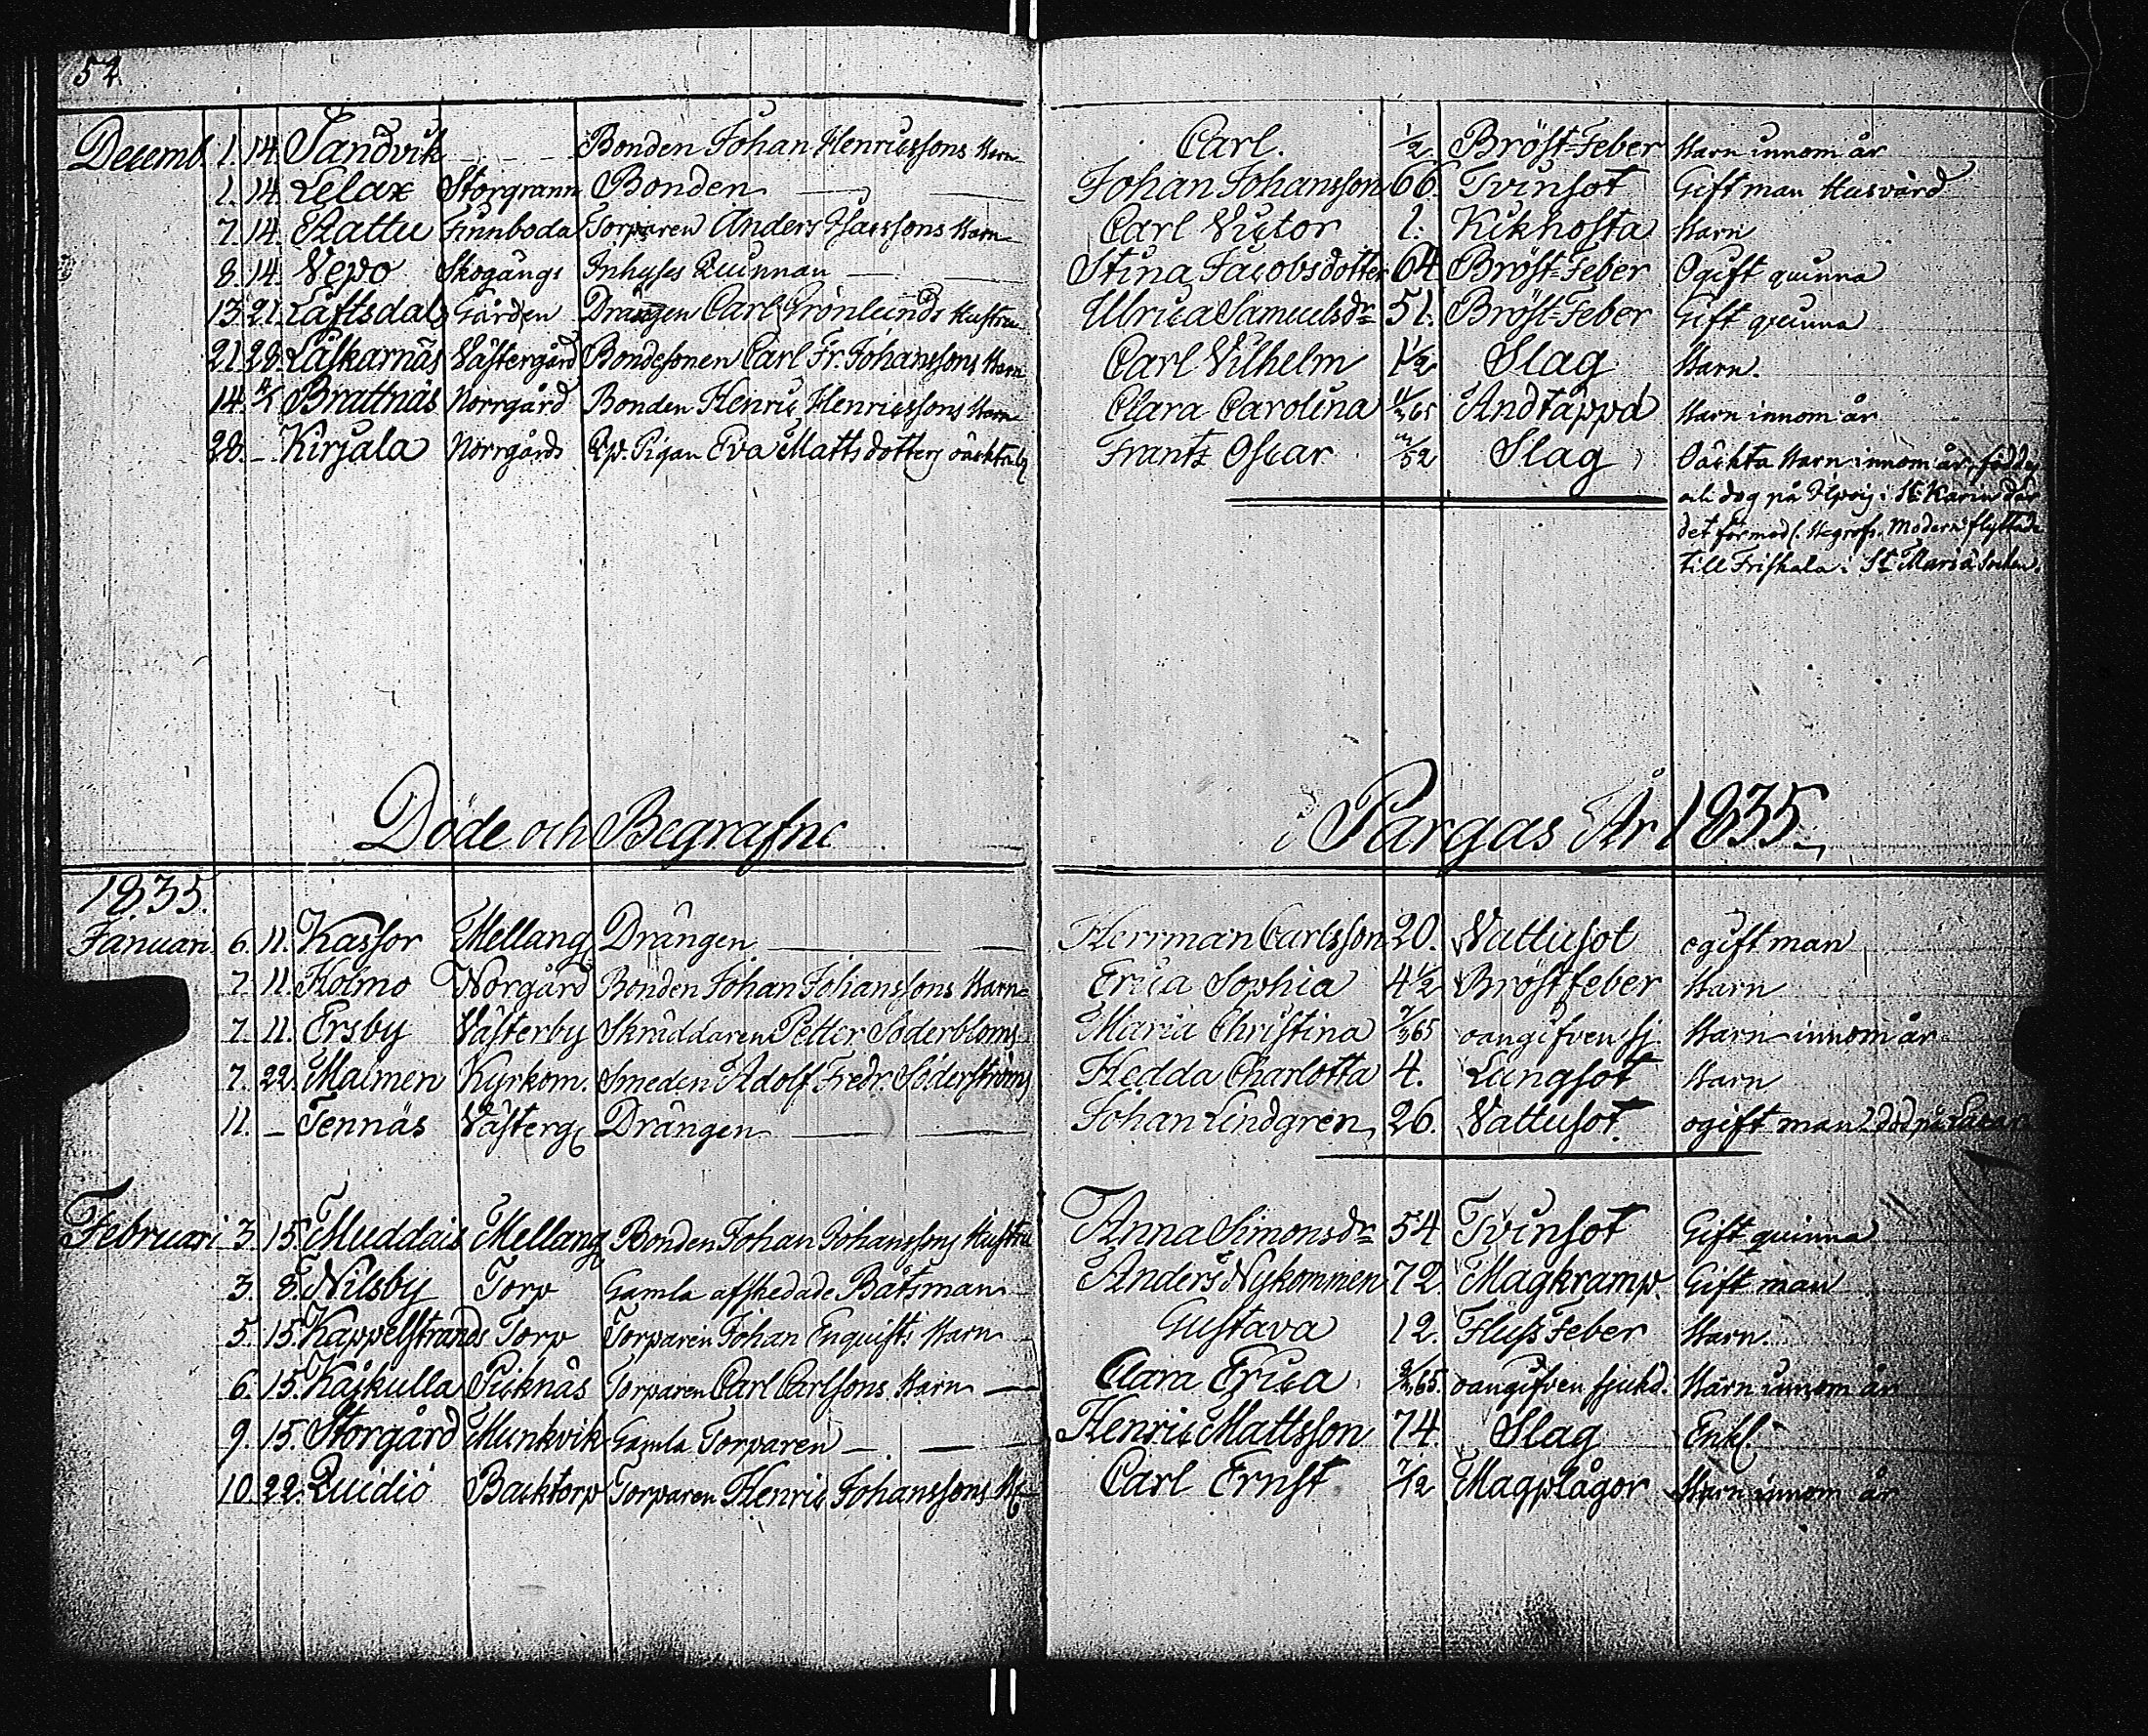 52.
Decemb. 1. 14. Sandvik Bonden Johan Henricssons Barn Carl. 1/2 Bröst=Feber Barn innom år
1. 14. Lelax Storgrann Bonden Johan Johansson 66. Tvinsot Gift man Husvärd
7. 14. Rattu Finnboda Torparen Anders Isacssons Barn Carl Victor 1. Kikhosta Barn
8. 14. Vepo Skogängs Inhyses Quinnan Stina Jacobsdotter 64 Bröst=Feber Ogift quinna
13. 21. Läftsdal Gården Drängen Carl Grönlunds Hustru Ulrica Samuelsdr 51. Bröst=Feber Gift quinna
21. 28. Låskarnäs Västergård Bondesonen Carl Fr. Johanssons Barn Carl Vilhelm 1 1/2 Slag Barn.
14. 4/1 Brattnäs Norrgård Bonden Henric Henricssons Barn Clara Carolina 11/365 Andtäppa Barn innom år
28. – Kirjala Norrgårds Pigan Eva Mattsdotters oächta Frantz Oscar /52 Slag Oächta Barn innom år, föddes
och dog på i St Karins där
det förmodl. Begrofs. Modern flyttade
till Friskala i St Mariæ Socken.
Döde och Begrafne i Pargas År 1835.
1835.
Januari. 6. 11. Kassor Mellang Drängen Herrman Carlsson 20. Vattusot ogift man
7. 11. Holmo Norgård Bonden Johan Johanssons Barn Erica Sophia 4 1/2 Bröstfeber Barn
7. 11. Ersby Västerby Skräddaren Petter Söderbloms Maria Christina 7/365 oangifven sj. Barn innom år
7. 22. Malmen Kyrkom. Smeden Adolf Fredr. Söderströms Hedda Charlotta 4. Lungsot Barn
11. – Tennäs Västerg Drängen Johan Lindgren 26. Vattusot. ogift man död på
Februari 3. 15. Muddais Mellang Bonden Johan Johanssons Hustru Anna Simonsdr 54 Tvinsot Gift quinna
3. 8. Nilsby Torp Gamla afskedade Båtsman Anders Nykommen 72. Magkramp. Gift man
5. 15. Kappelstrands Torp Torparen Johan Enquists Barn Gustava 12. Fluss Feber Barn.
6. 15. Kajkulla Piiknäs Torparen Carl Carlsons Barn Clara Erica /365. oangifven sjukd. Barn innom år
9. 15. Storgård Munkvik Gamla Torparen Henric Mattsson 74. Slag Enkl.
10. 22. Quidiö Backtorp Torparen Henric Johanssons B Carl Ernst 7/12 Magplågor Barn innom år